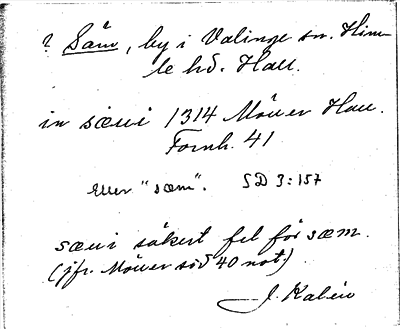 ? Säm, by i Valinge sn. Him-
le hd. Hall.
in sæui 1314 Möller Hall.
Fornh. 41
Eller "sæm". SD 3:157
sæui säkert fel för sæm.
(jfr. Möller sid 40 not.)
J. Kalén